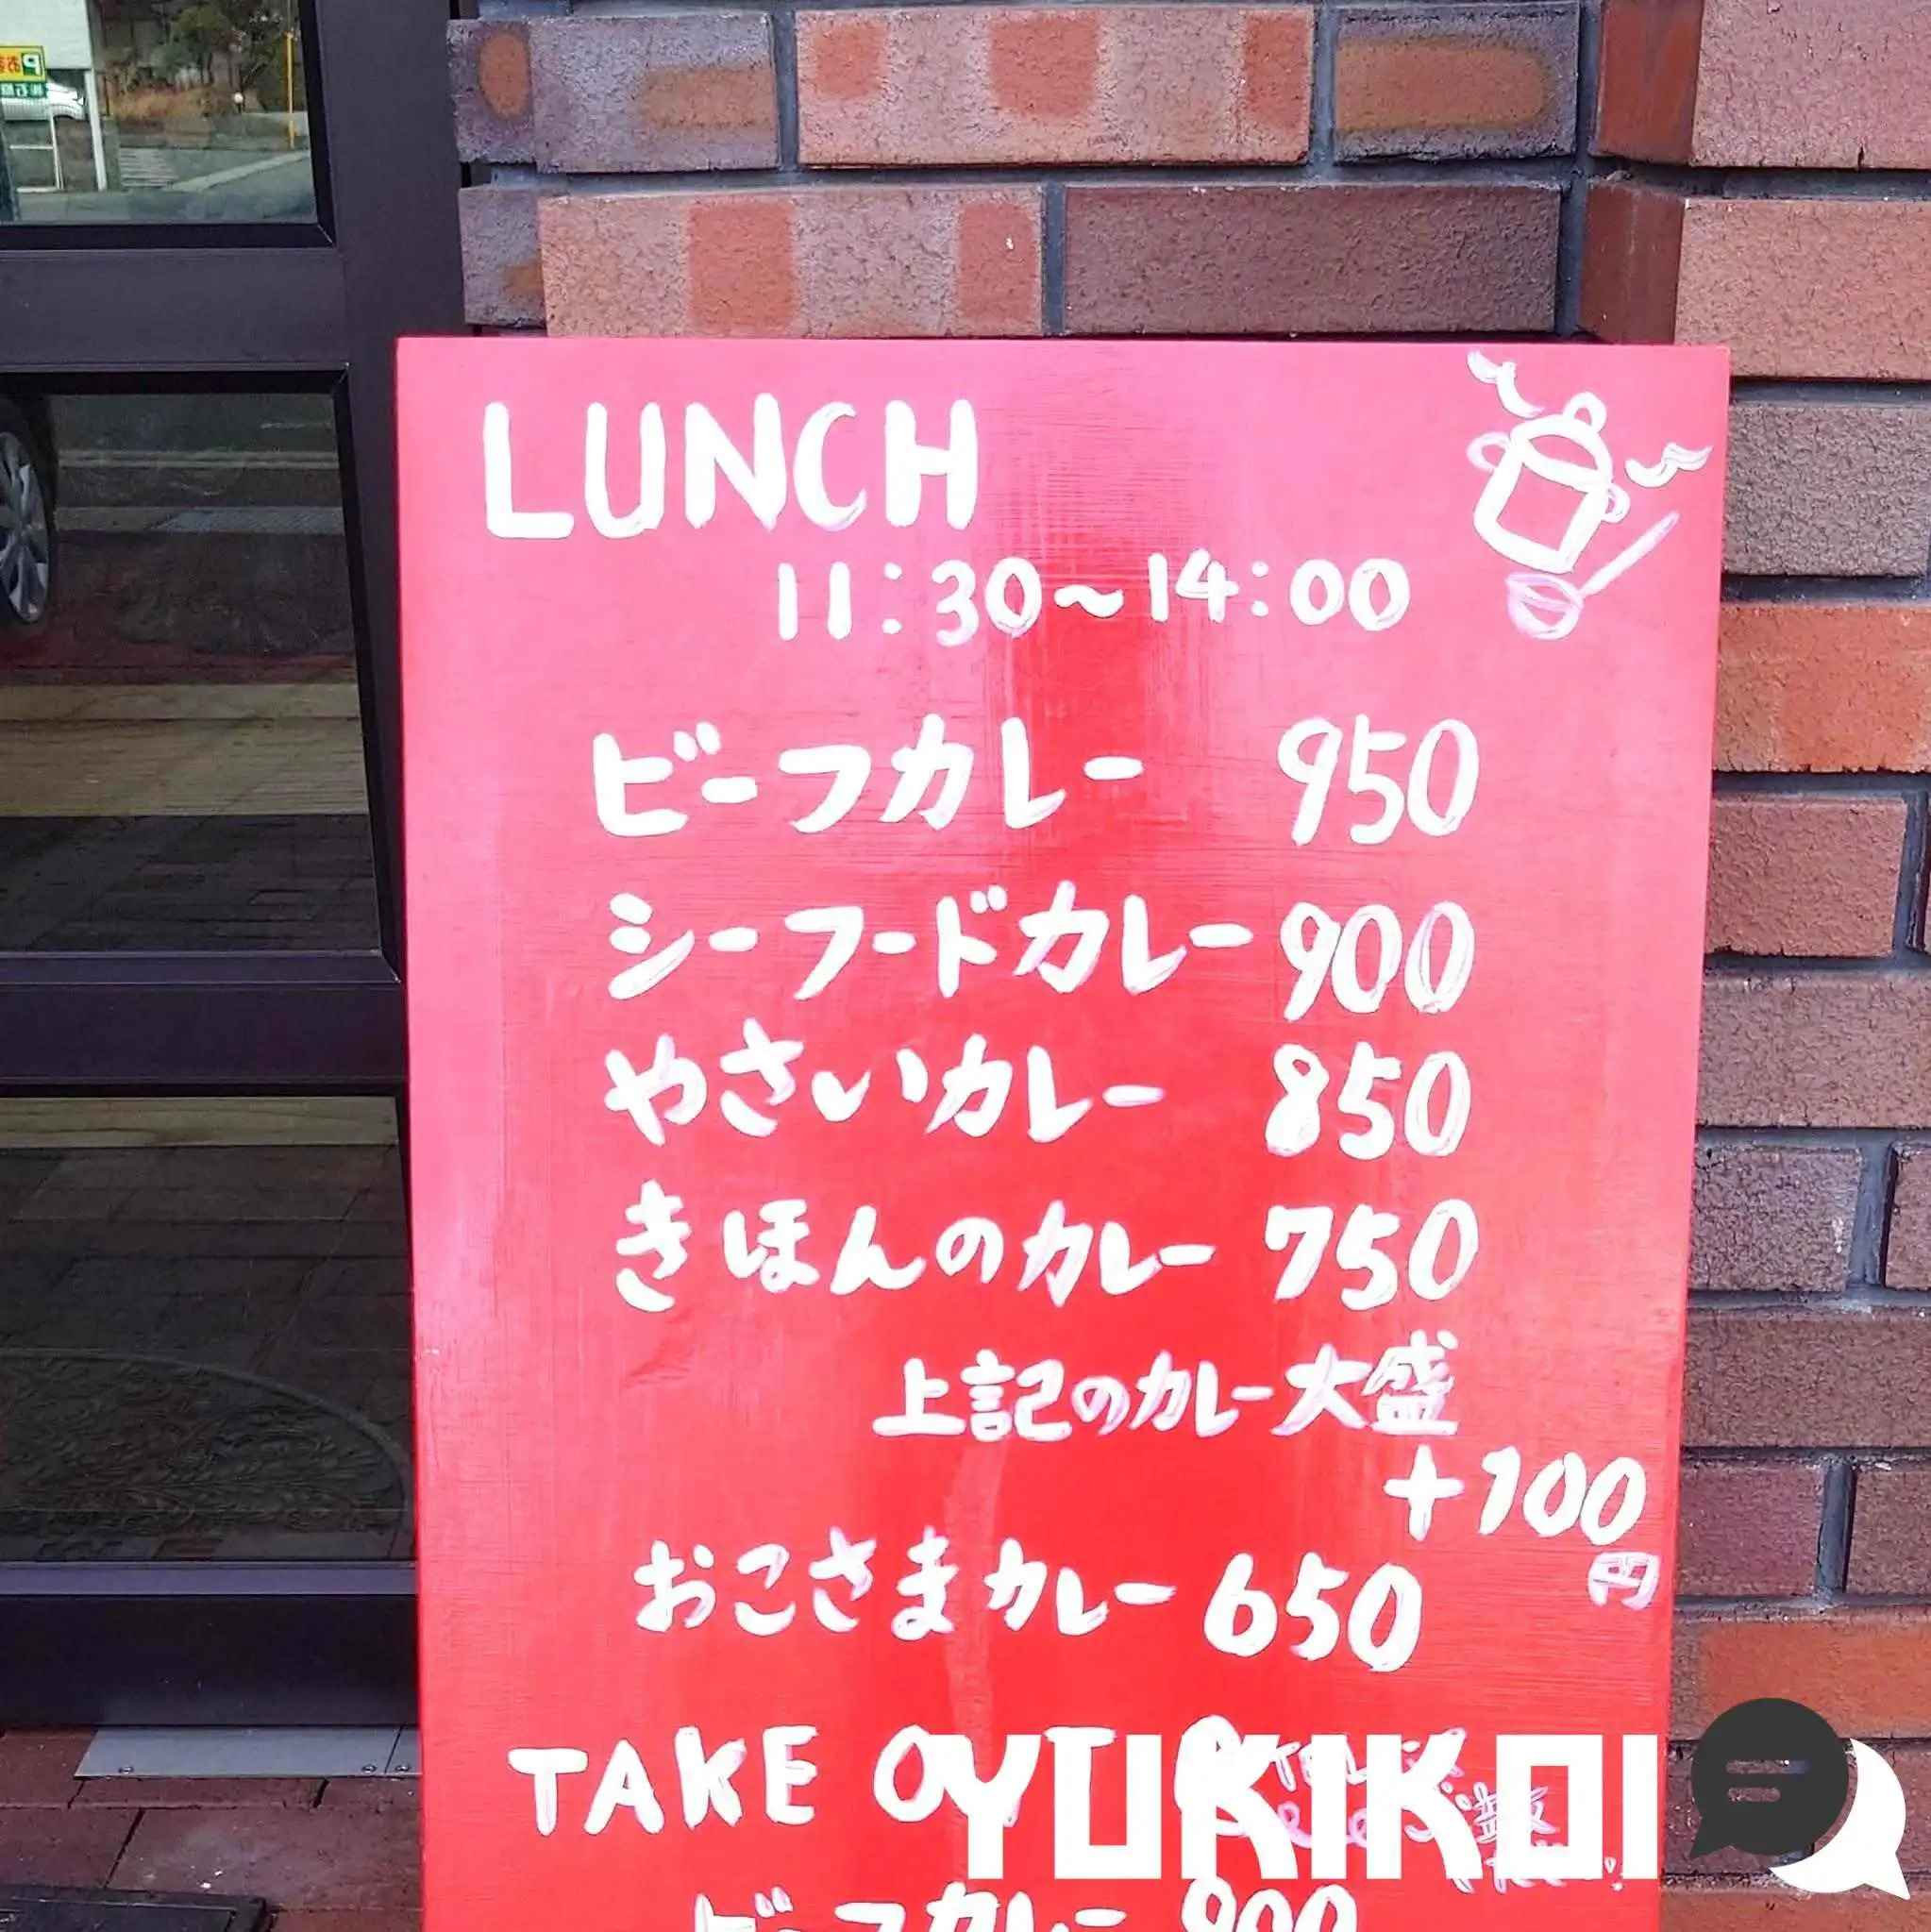 LUNCH
11:30~14:00
ビーフカレー 950
シーフードカレー 900
やさいカレー 850
きほんのカレー 750
上記のカレー大盛
+100
円
おこさまカレー 650
TAKE OUT
YUKIKOI
ビーフカレー 900